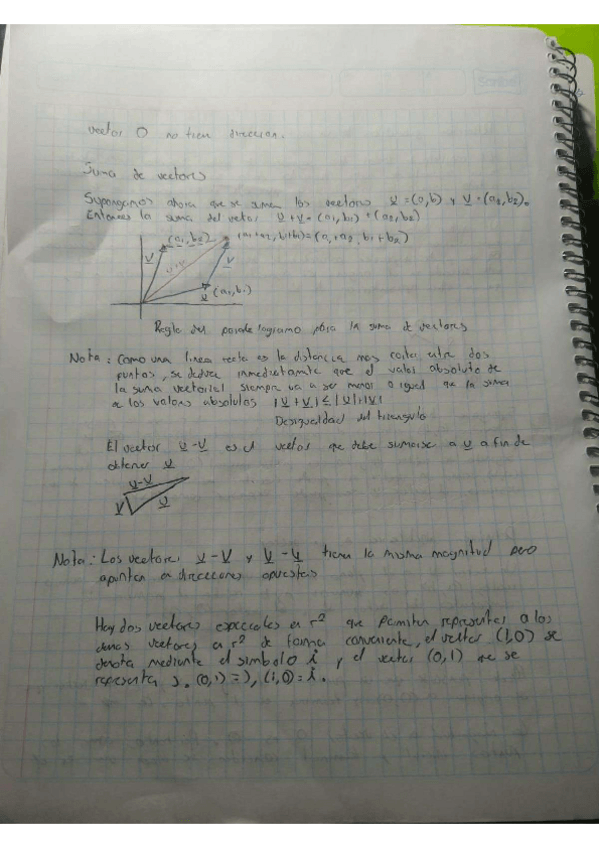 vector 0 no tien direccion.
Suma de vectores
Supongamos ahora que se suman los vectores u = (a, b) y v = (a2, b2).
Entonces la suma del vector u + v = (a1, b1) + (a2, b2)
(a1, b2) (a1 + a2, b1 + b2) = (a1 + a2, b1 + b2)
v u+v v
u (a1, b1)
Regla del paralelogramo para la suma de vectores
Nota: Como una linea recta es la distancia mas corta entre dos
puntos, se deduce inmediatamente que el valor absoluto de
la suma vectorial siempre va a ser menor o igual que la suma
de los valores absolutos |u + v| ≤ |u| + |v|
Desigualdad del triangulo
El vector u - v es el vector que debe sumarse a v a fin de
obtener u
u-v
v u
Nota: Los vectores u - v y v - u tienen la misma magnitud pero
apuntan en direcciones opuestas
Hay dos vectores especiales en r² que permiten representar a los
demas vectores en r² de forma conveniente, el vector (1,0) se
denota mediante el simbolo i, y el vector (0,1) se
representa j. (0,1) = j, (1,0) = i.